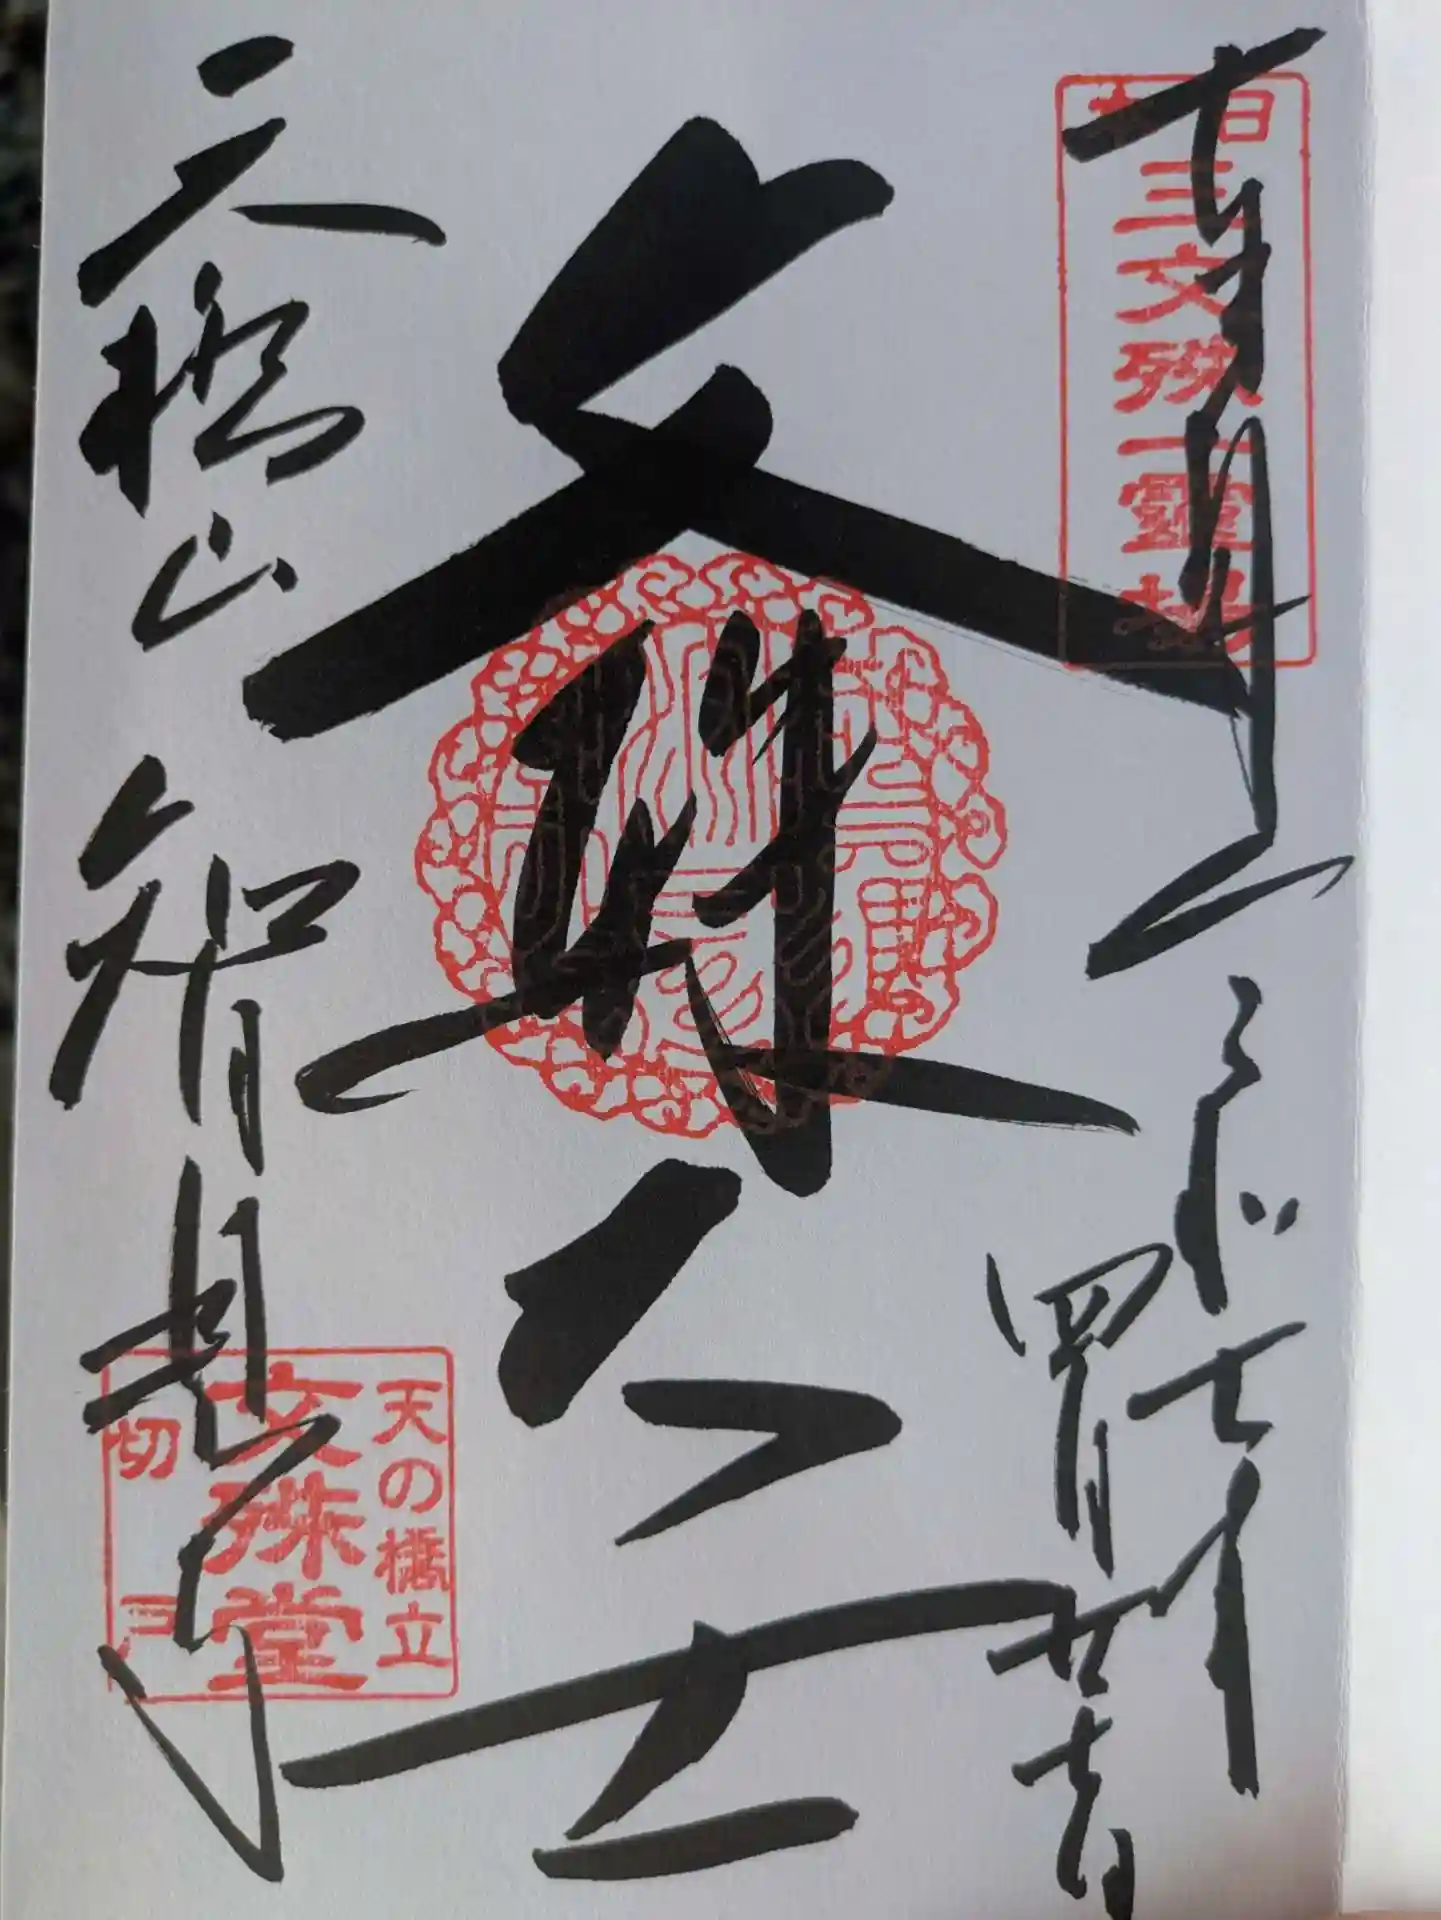 日本
三文殊一霊場
七年
四月廿
文殊大士
天橋山 智恩寺
天の橋立
文殊堂
切戸